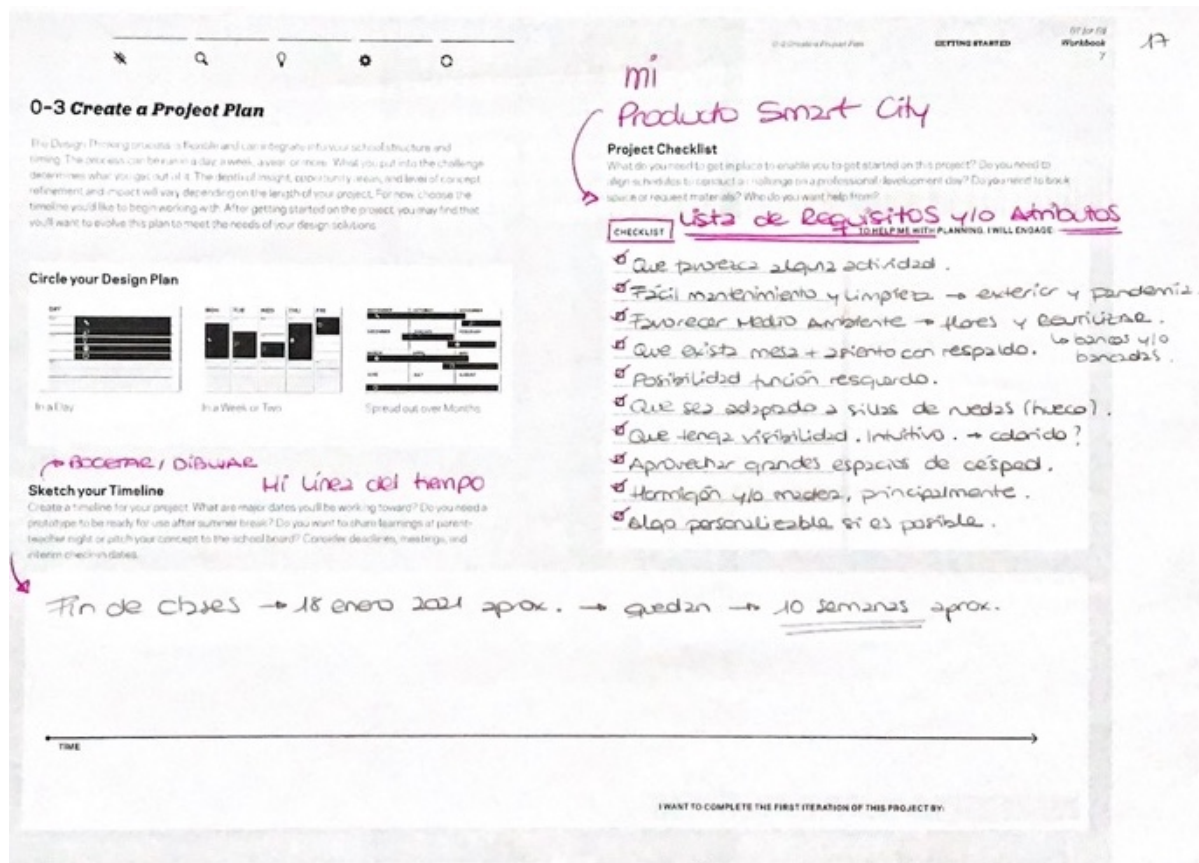 0-3 Create a Project Plan
GETTING STARTED
Workbook
7
17
mi
Producto Smart City
The Design Thinking process is flexible and can integrate into your school structure and
timing. The process can be run in a day, a week, a year or more. What you put into the challenge
determines what you get out of it. The depth of insight, opportunity areas, and level of concept
refinement and impact will vary depending on the length of your project. For now, choose the
timeline you'd like to begin working with. After getting started on the project, you may find that
you'll want to evolve this plan to meet the needs of your design solutions.
Circle your Design Plan
DAY
MON TUE WED THU FRI
In a Day
In a Week or Two
Spread out over Months
→ BOCETAR / DIBUJAR
Mi Línea del tiempo
Sketch your Timeline
Create a timeline for your project. What are major dates you'll be working toward? Do you need a
prototype to be ready for use after summer break? Do you want to share learnings at parent-
teacher night or pitch your concept to the school board? Consider deadlines, meetings, and
interim check-in dates.
Project Checklist
What do you need to get in place to enable you to get started on this project? Do you need to
align schedules to conduct a challenge on a professional development day? Do you need to book
space or request materials? Who do you want help from?
Lista de Requisitos y/o Atributos
CHECKLIST
TO HELP ME WITH PLANNING, I WILL ENGAGE
Que favorezca alguna actividad.
Fácil mantenimiento y limpieza → exterior y pandemia.
Favorecer Medio Ambiente → flores y REUTILIZAR.
↳ bancos y/o
bancadas.
Que exista mesa + asiento con respaldo.
Posibilidad función resguardo.
Que sea adaptado a sillas de ruedas (hueco).
Que tenga visibilidad. Intuitivo. → colorido?
Aprovechar grandes espacios de césped.
Hormigón y/o madera, principalmente.
Algo personalizable si es posible.
Fin de clases → 18 enero 2021 aprox. → quedan → 10 semanas aprox.
TIME
I WANT TO COMPLETE THE FIRST ITERATION OF THIS PROJECT BY: